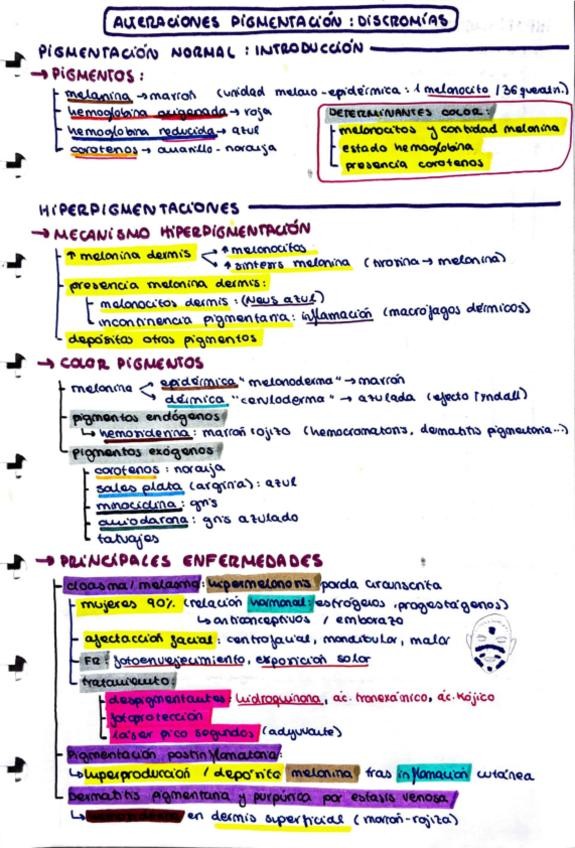 ALTERACIONES PIGMENTACIÓN : DISCROMÍAS
PIGMENTACIÓN NORMAL : INTRODUCCIÓN
→ PIGMENTOS :
melanina → marrón (unidad melano-epidérmica : 1 melanocito / 36 queratin.)
hemoglobina oxigenada → roja
hemoglobina reducida → azul
carotenos → amarillo - naranja
DETERMINANTES COLOR :
melanocitos y cantidad melanina
estado hemoglobina
presencia carotenos
HIPERPIGMENTACIONES
→ MECANISMO HIPERPIGMENTACIÓN
↑ melanina dermis
↑ melanocitos
↑ síntesis melanina (tirosina → melanina)
presencia melanina dermis :
melanocitos dermis : (Neus azul)
incontinencia pigmentaria : inflamación (macrófagos dérmicos)
depósitos otros pigmentos
→ COLOR PIGMENTOS
melanina
epidérmica "melanoderma" → marrón
dérmica "ceruloderma" → azulada (efecto Tyndall)
pigmentos endógenos
↳ hemosiderina : marrón rojizo (hemocromatosis, dermatitis pigmentaria...)
pigmentos exógenos
carotenos : naranja
sales plata (argiria) : azul
minociclina : gris
amiodarona : gris azulado
tatuajes
→ PRINCIPALES ENFERMEDADES
cloasma / melasma : hipermelanosis parda circunscrita
mujeres 90% (relación hormonal : estrógenos, progestágenos)
↳ anticonceptivos / embarazo
afectacción facial : centrofacial, mandibular, malar
FR : fotoenvejecimiento, exposición solar
tratamiento :
despigmentantes : hidroquinona, ác. tranexámico, ác. kójico
fotoprotección
láser pico segundos (adyuvante)
Pigmentación postinflamatoria :
↳ hiperproducción / depósito melanina tras inflamación cutánea
Dermatitis pigmentaria y purpúrica por estasis venosa
↳ en dermis superficial (marrón-rojiza)